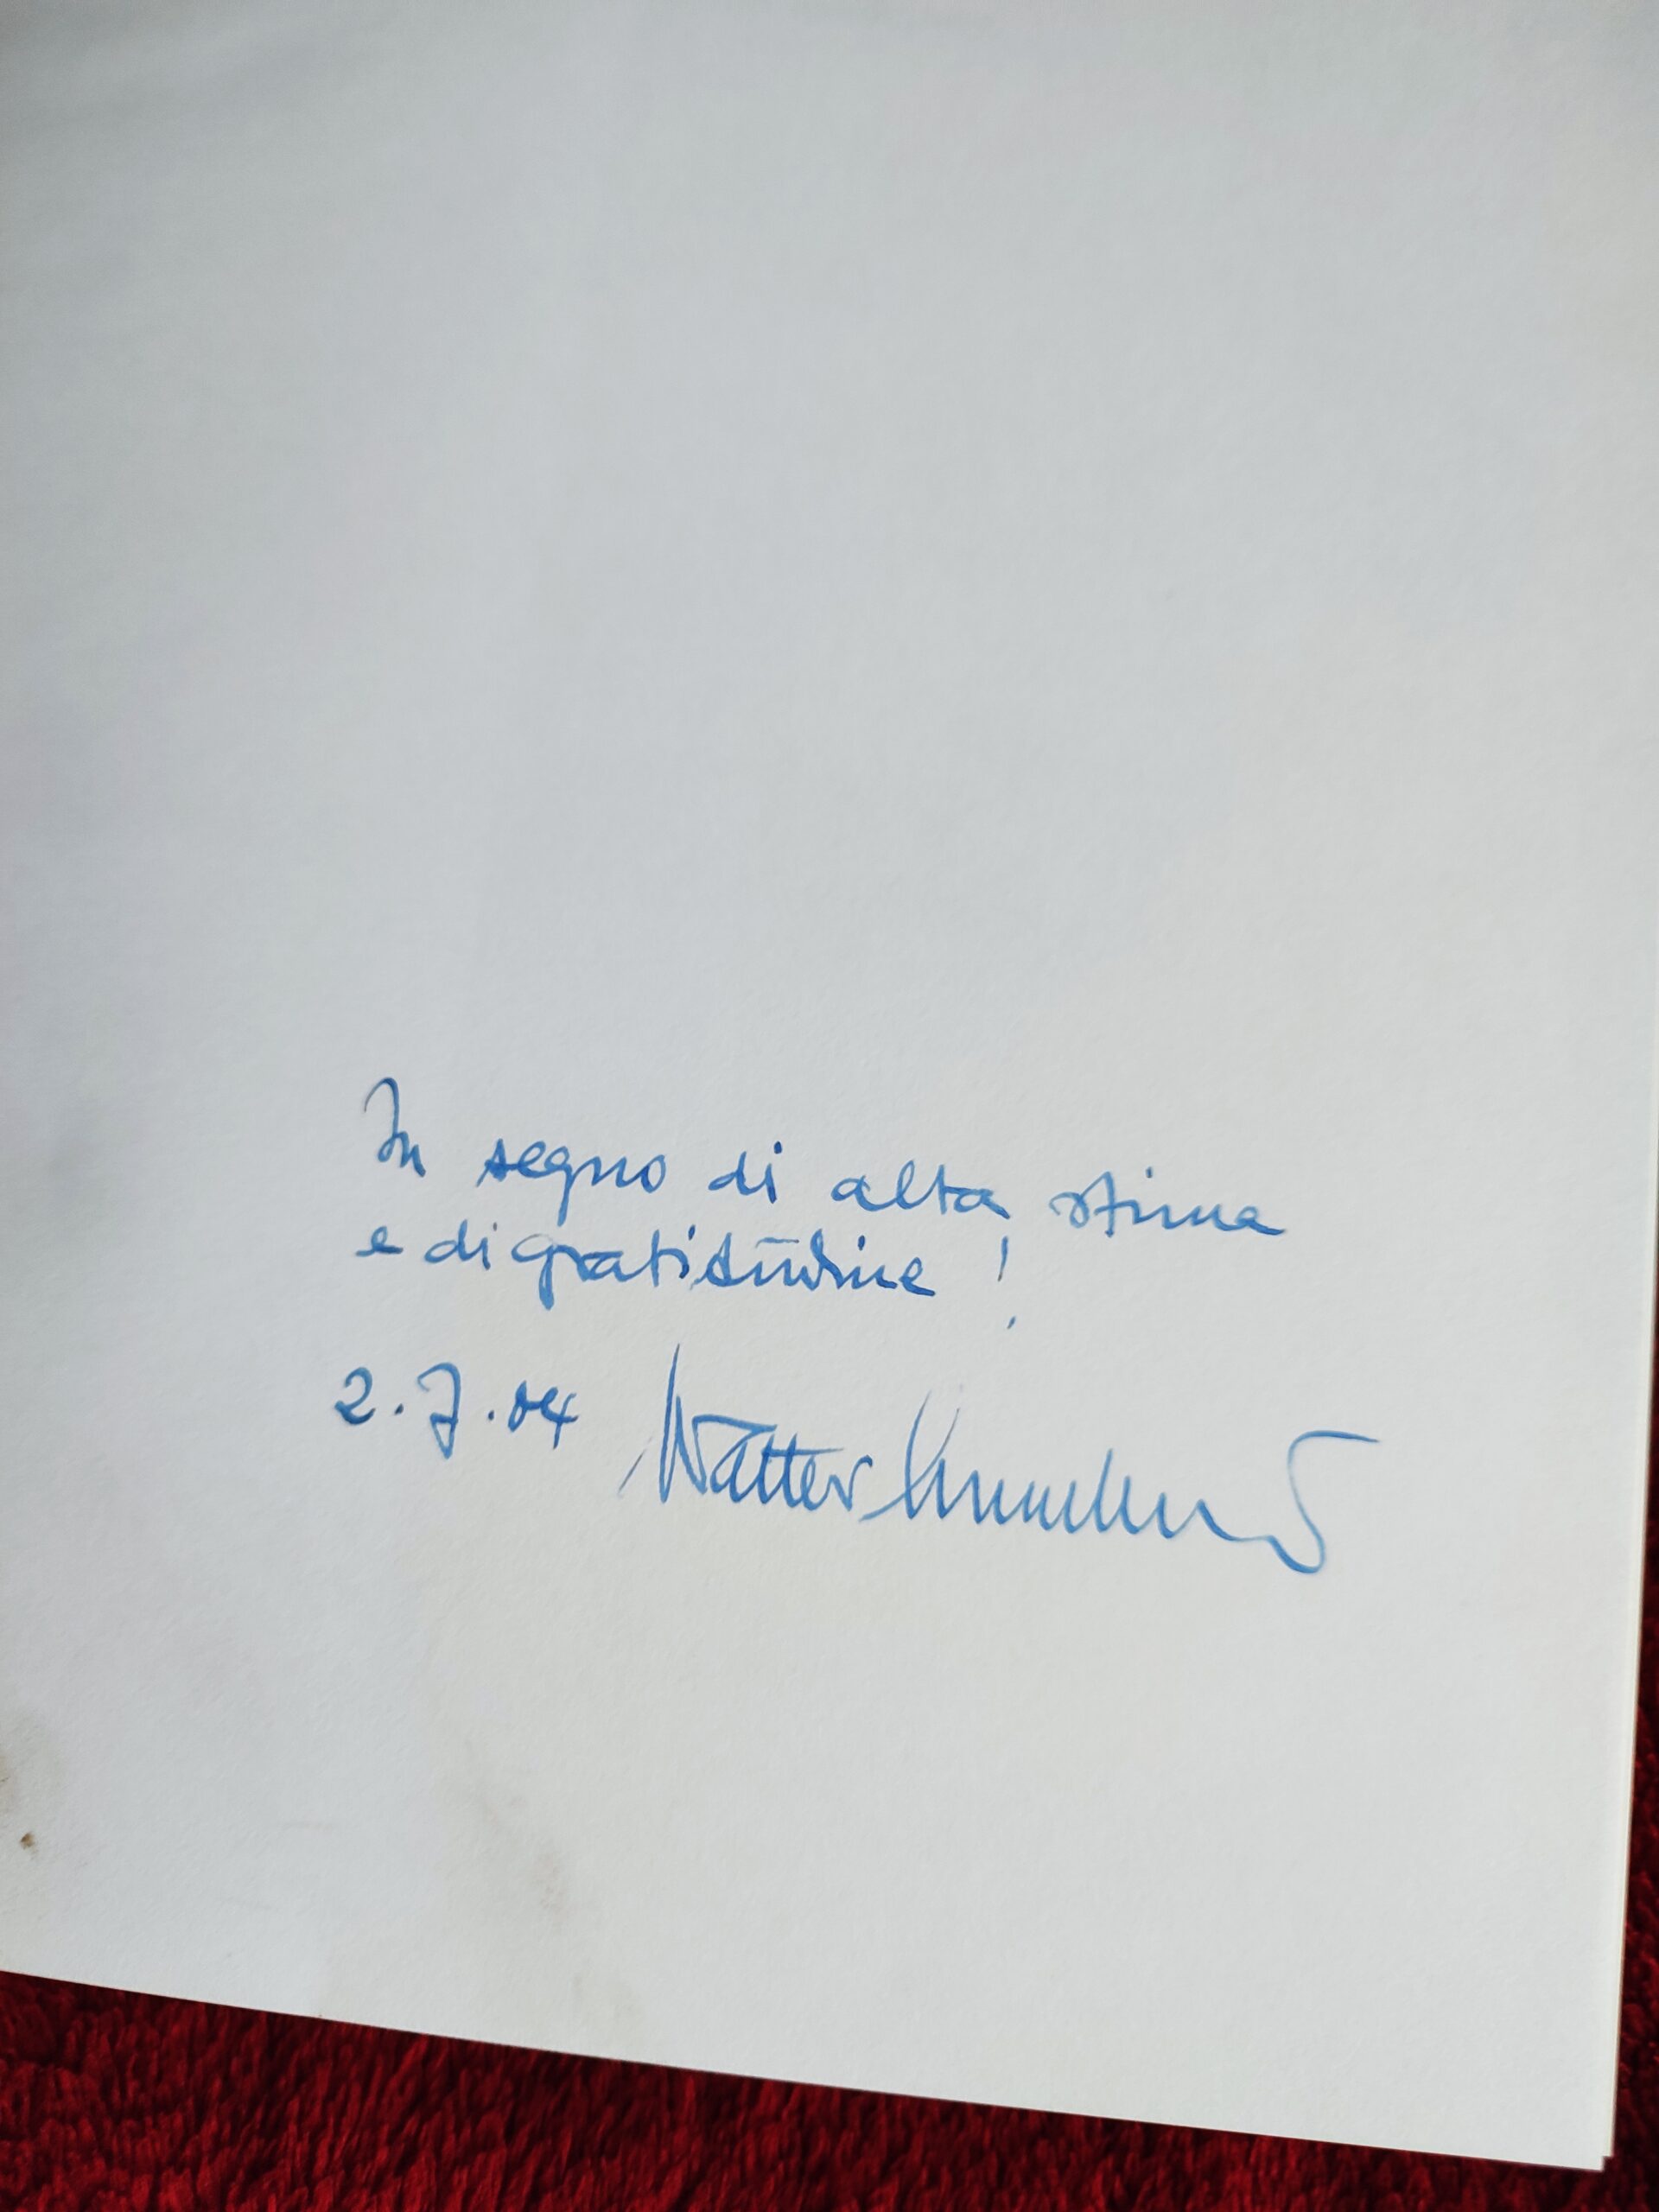 In segno di alta stima
e di gratitudine!
2.7.04 Walter